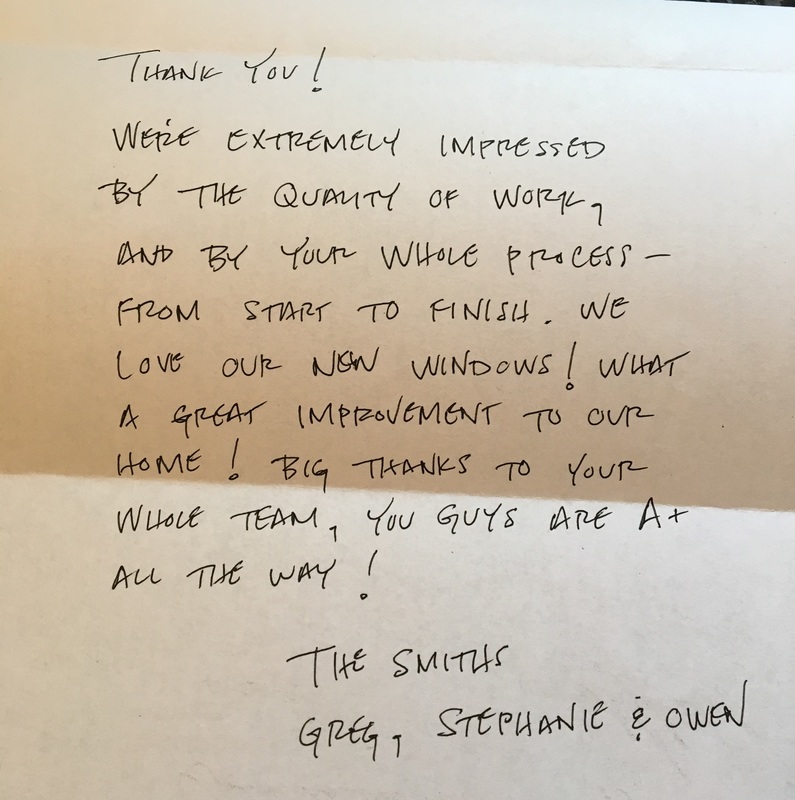 THANK YOU!
WE'RE EXTREMELY IMPRESSED
BY THE QUALITY OF WORK,
AND BY YOUR WHOLE PROCESS —
FROM START TO FINISH. WE
LOVE OUR NEW WINDOWS! WHAT
A GREAT IMPROVEMENT TO OUR
HOME! BIG THANKS TO YOUR
WHOLE TEAM, YOU GUYS ARE A+
ALL THE WAY!
THE SMITHS
GREG, STEPHANIE & OWEN